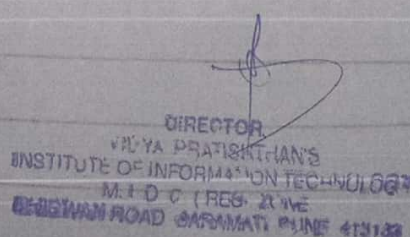 DIRECTOR,
VIDYA PRATISHTHAN'S
INSTITUTE OF INFORMATION TECHNOLOGY
M. I D C ( REG.
BHIGWAN ROAD BARAMATI PUNE 413133